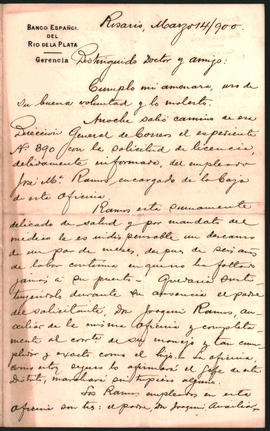 Rosario, Marzo 14/900.
BANCO ESPAÑOL
DEL
RIO DE LA PLATA
Gerencia
Distinguido Doctor y amigo:
Cumplo mi amenaza, uso de
su buena voluntad y lo molesto.
Anoche salió camino de esa
Dirección General de Correos el expediente
Nº 390 con la solicitud de licencia,
debidamente informado, del empleado
José Mª Ramos encargado de la Caja
de esta oficina
Ramos está sumamente
delicado de salud y por mandato del
médico le es indispensable un descanso
de un par de meses, despues de seis años
de labor contínua en que no ha faltado
jamás á su puesto. Quedaría sosti-
tuyendolo durante su ausencia el padre
del solicitante, Don Joaquin Ramos, au-
xiliar de la misma oficina y completa-
mente al corriente de su manejo y tan cum-
plidor y exacto como el hijo. La oficina
como estoy seguro lo afirmará el Gefe de este
Distrito, marchará sin tropiezo alguno.
Los Ramos empleados en esta
oficina son tres: el padre, Don Joaquin Auxiliar,